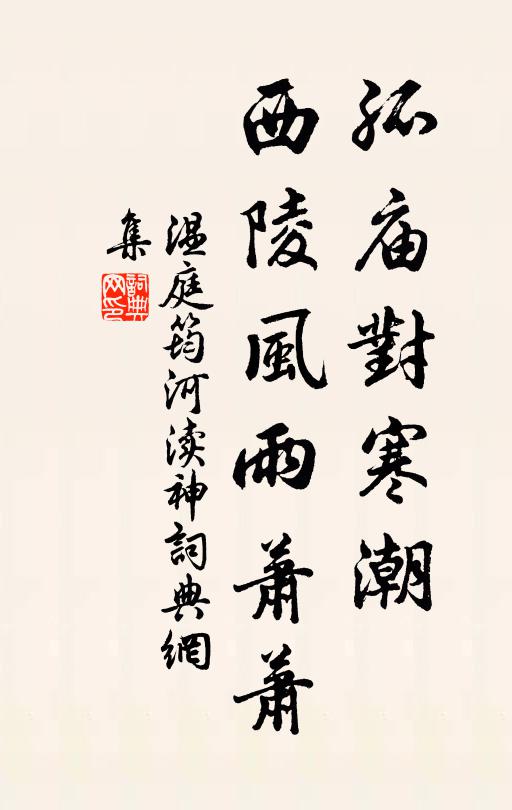 孤庙對寒潮
西陵風雨蕭蕭
温庭筠河渎神詞典網
集
詞典
网印